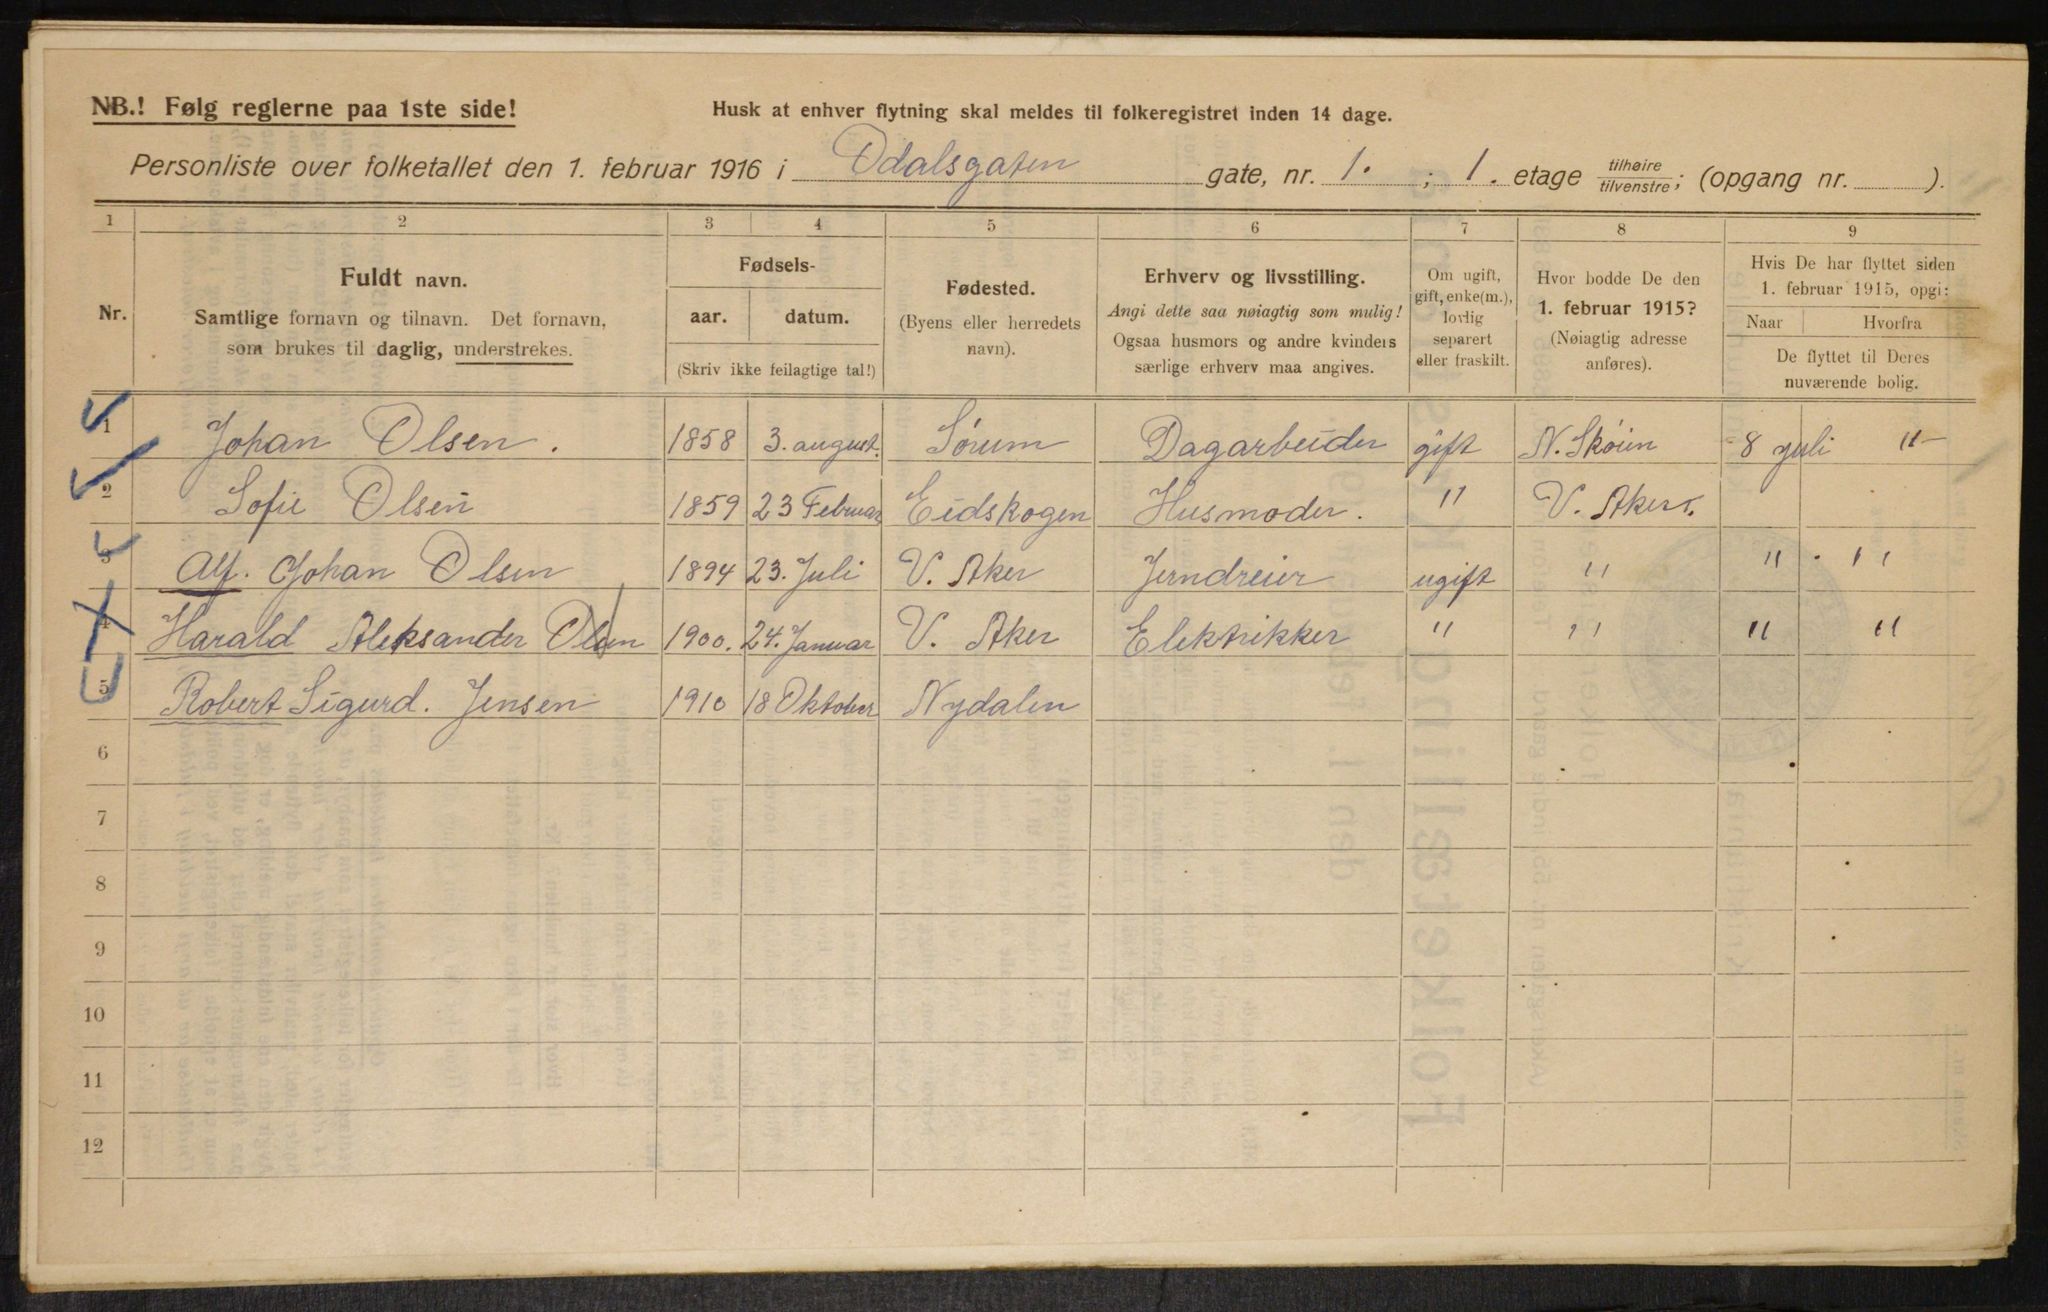 NB.! Følg reglerne paa 1ste side!
Husk at enhver flytning skal meldes til folkeregistret inden 14 dage.
Personliste over folketallet den 1. februar 1916 i Odalsgaten gate, nr. 1. ; 1. etage tilhøire/tilvenstre; (opgang nr. ).
1 2 3 4 5 6 7 8 9
Nr.
Fuldt navn.
Samtlige fornavn og tilnavn. Det fornavn,
som brukes til daglig, understrekes.
Fødsels-
aar. datum.
(Skriv ikke feilagtige tal!)
Fødested.
(Byens eller herredets
navn).
Erhverv og livsstilling.
Angi dette saa nøiagtig som mulig!
Ogsaa husmors og andre kvinders
særlige erhverv maa angives.
Om ugift,
gift, enke(m.),
lovlig
separert
eller fraskilt.
Hvor bodde De den
1. februar 1915?
(Nøiagtig adresse
anføres).
Hvis De har flyttet siden
1. februar 1915, opgi:
Naar Hvorfra
De flyttet til Deres
nuværende bolig.
1 Johan Olsen. 1858 3. august. Sørum Dagarbeider gift N. Skøien 8 juli "
2 Sofie Olsen 1859 23 Februar Eidskogen Husmoder. " V. Aker.
3 Alf. Johan Olsen 1894 23. Juli V. Aker Jerndreier ugift " " "
4 Harald Aleksander Olsen 1900. 24. Januar V. Aker Elektrikker " " " "
5 Robert Sigurd. Jensen 1910 18 Oktober Nydalen
6
7
8
9
10
11
12